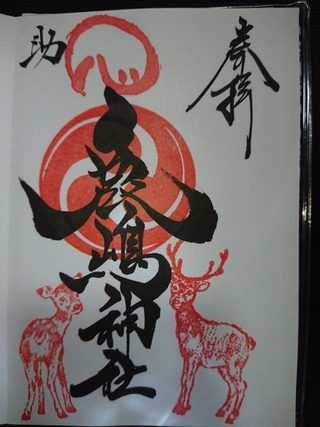 奉拝
鹿嶋神社
助